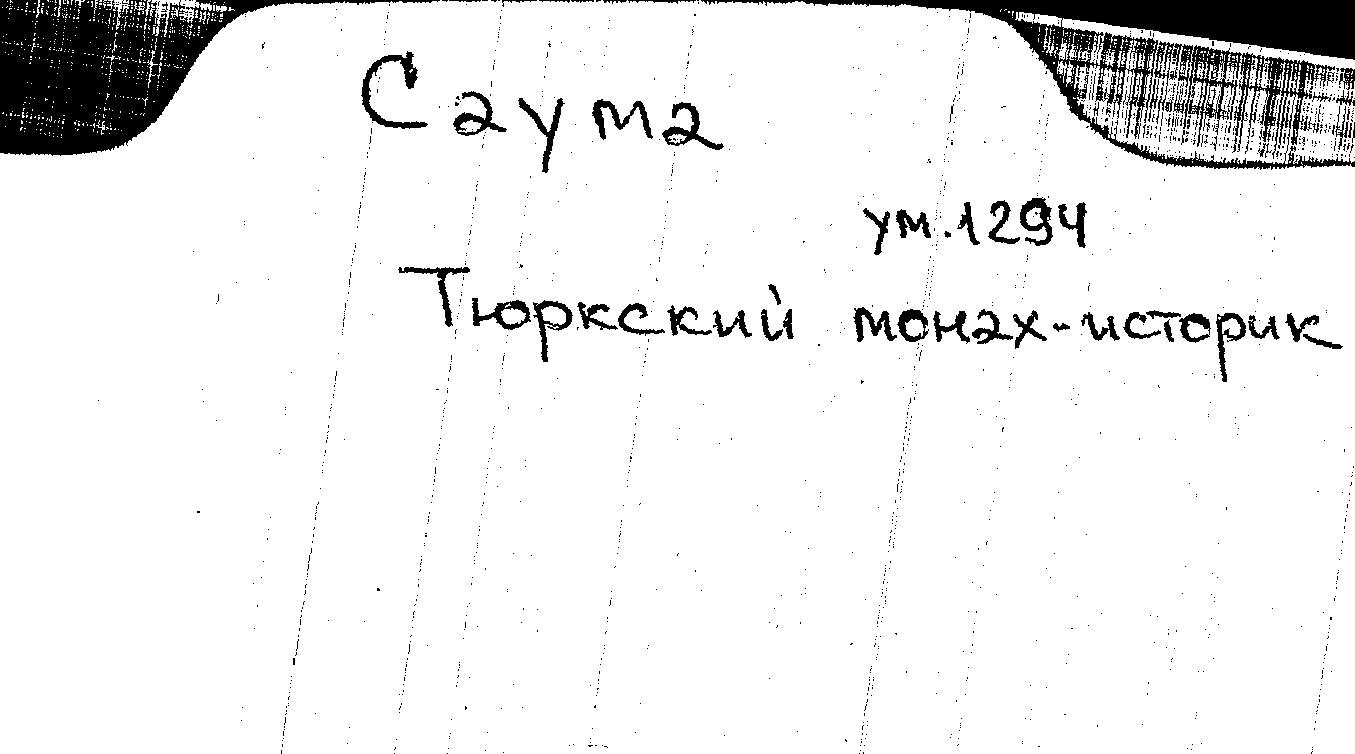 Саума
ум. 1294
Тюркский монах-историк